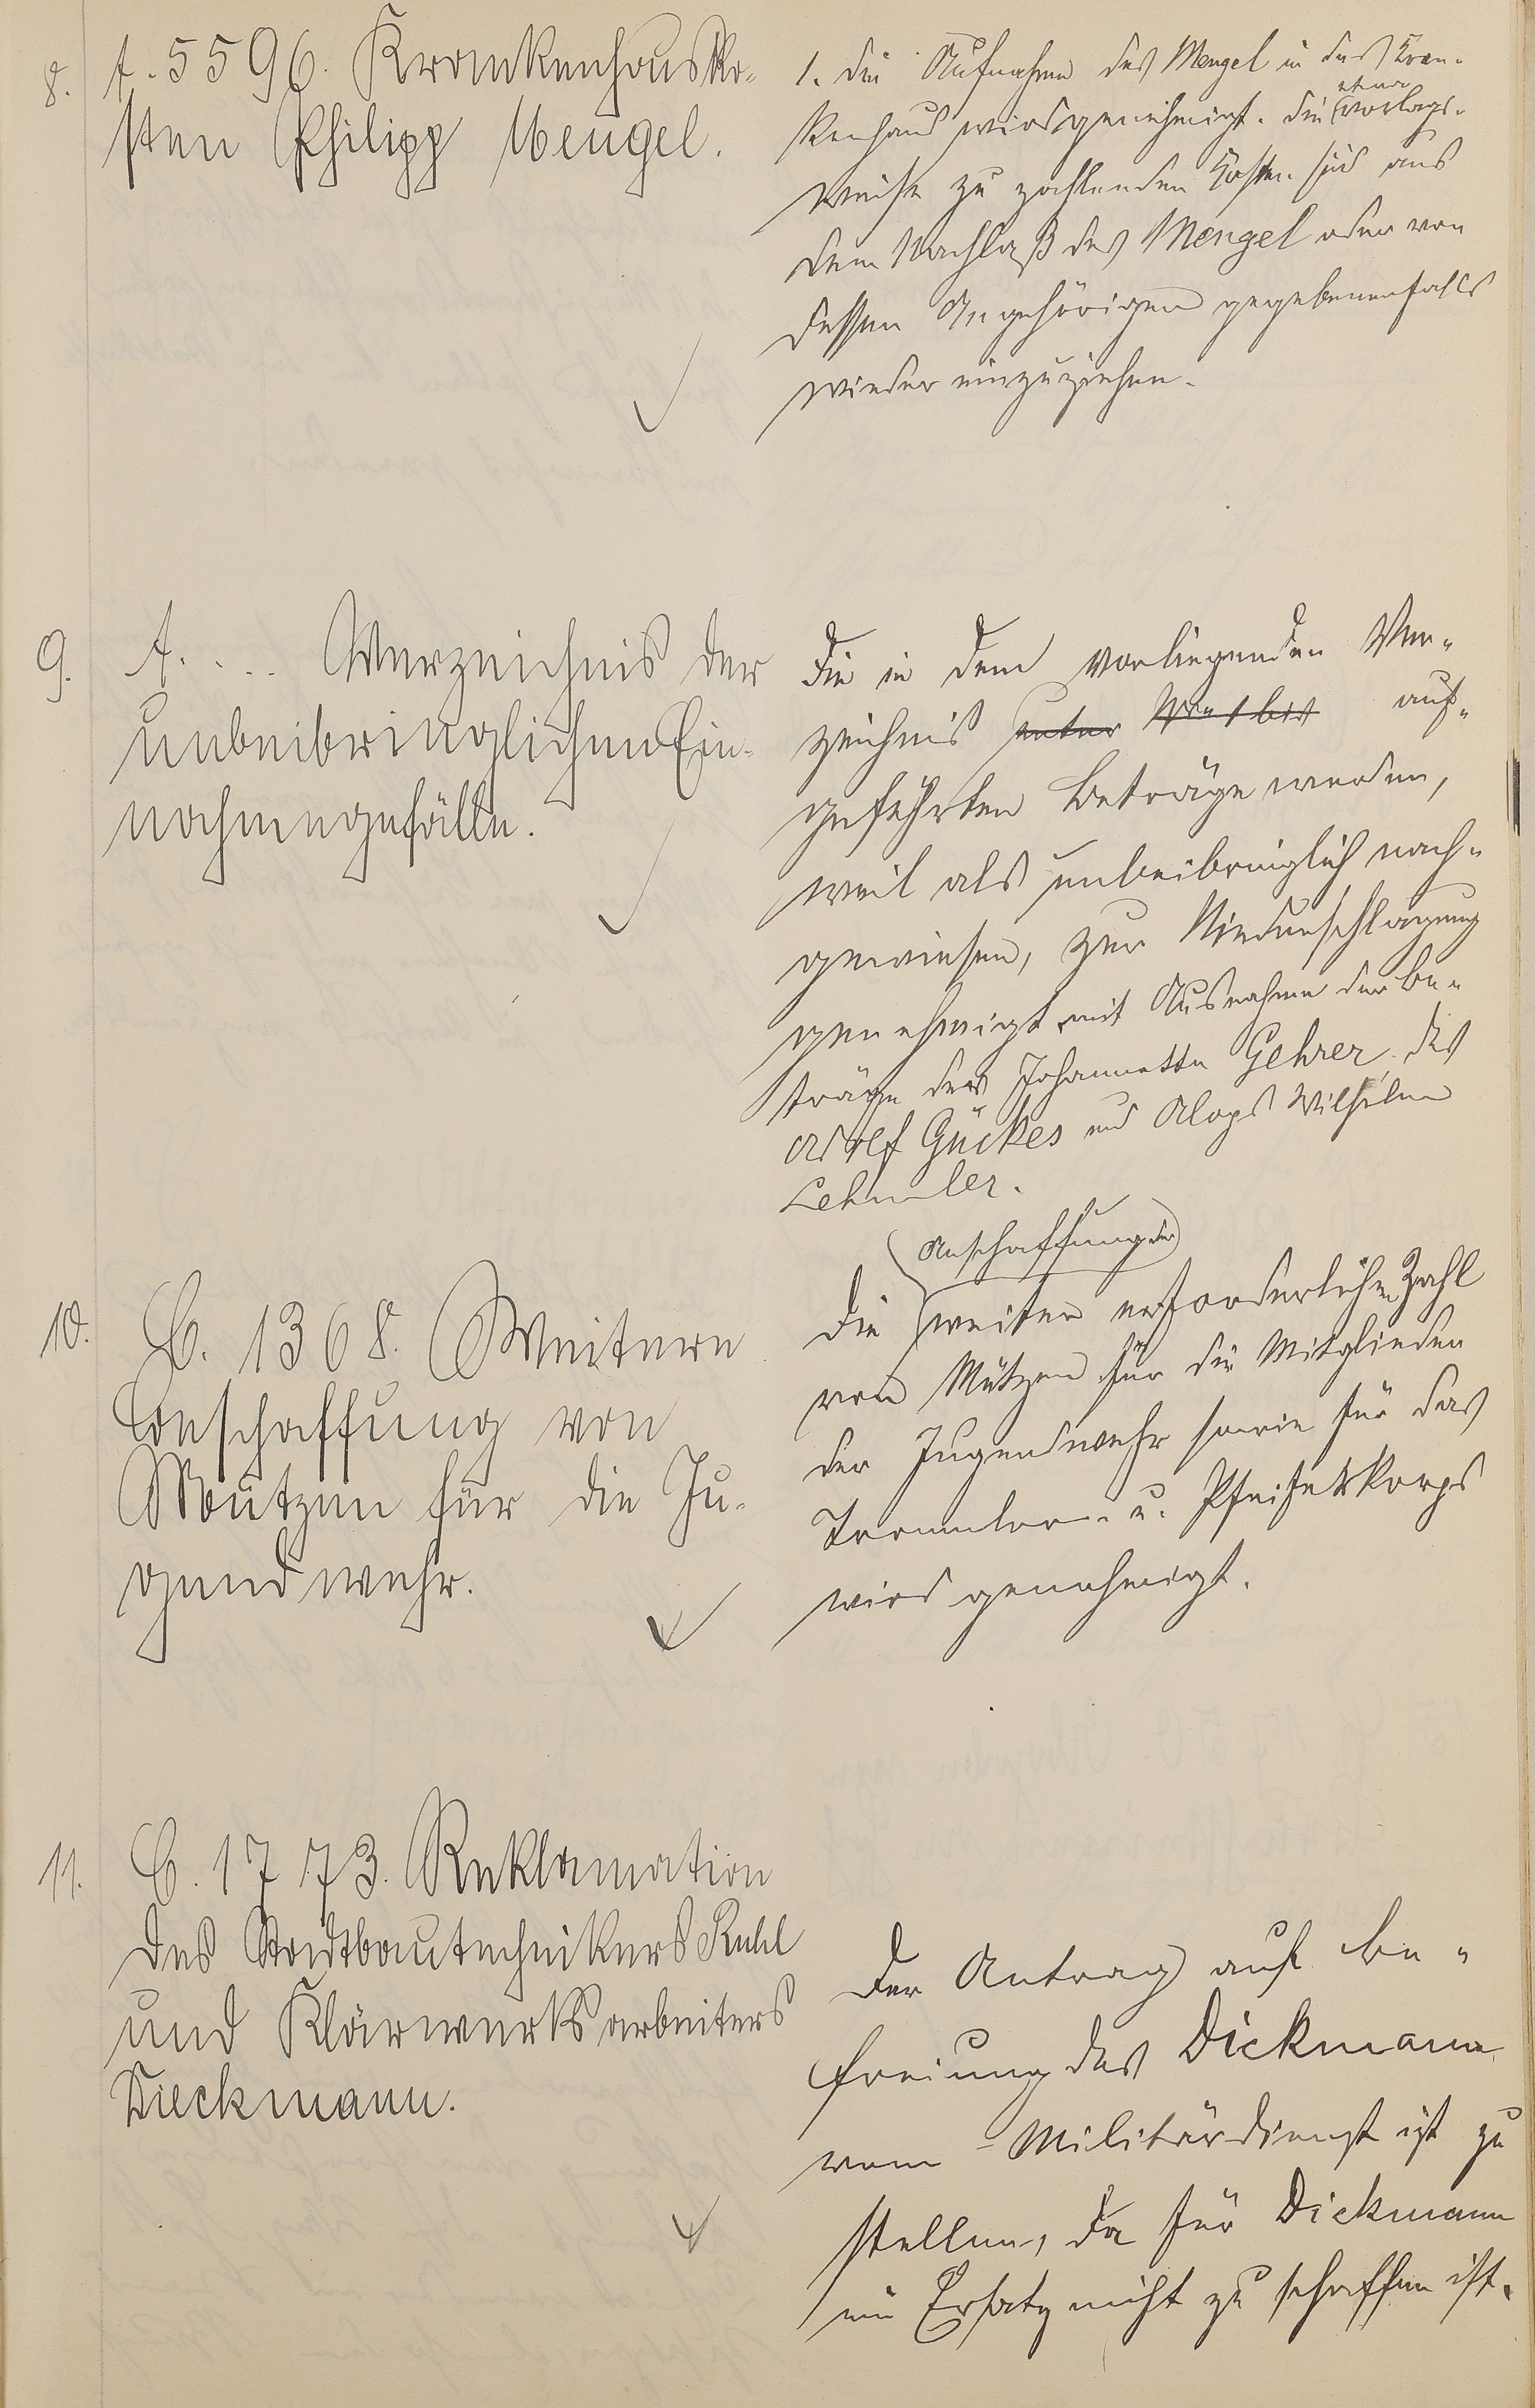 8.
A. 5596. Krankenhausko-
sten Philipp Mengel.
1. Die Aufnahme des Mengel in das Kran-
kenhaus wird genehmigt. Die etwa vorlags-
weise zu zahlenden Kosten sind aus
dem Nachlaß des Mengel oder von
dessen Angehörigen gegebenenfalls
wieder einzuziehen.
9.
A. ... Verzeichnis der
unbeibringlichen Ein-
nahmegefälle.
Die in dem vorliegenden Ver-
zeichnis unter No 1 bis auf-
geführten Beträge werden,
weil als unbeibringlich nach-
gewiesen, zur Niederschlagung
genehmigt mit Ausnahme der Be-
träge der Johannette Gehrer, des
Adolf Gückes und Aloys Wilhelm
Lehmler.
10.
C. 1368. Weitere
Beschaffung von
Mützen für die Ju-
gendwehr.
Die Anschaffung der weiter erforderlichen Zahl
von Mützen für die Mitglieder
der Jugendwehr sowie für das
Trommler- u. Pfeiferkorps
wird genehmigt.
11.
C. 1773. Reklamation
des Stadtbautechnikers Ruhl
und Klärwerksarbeiters
Dieckmann.
Der Antrag auf Be-
freiung des Dickmann
vom Militärdienst ist zu
stellen, da für Dickmann
ein Ersatz nicht zu schaffen ist.